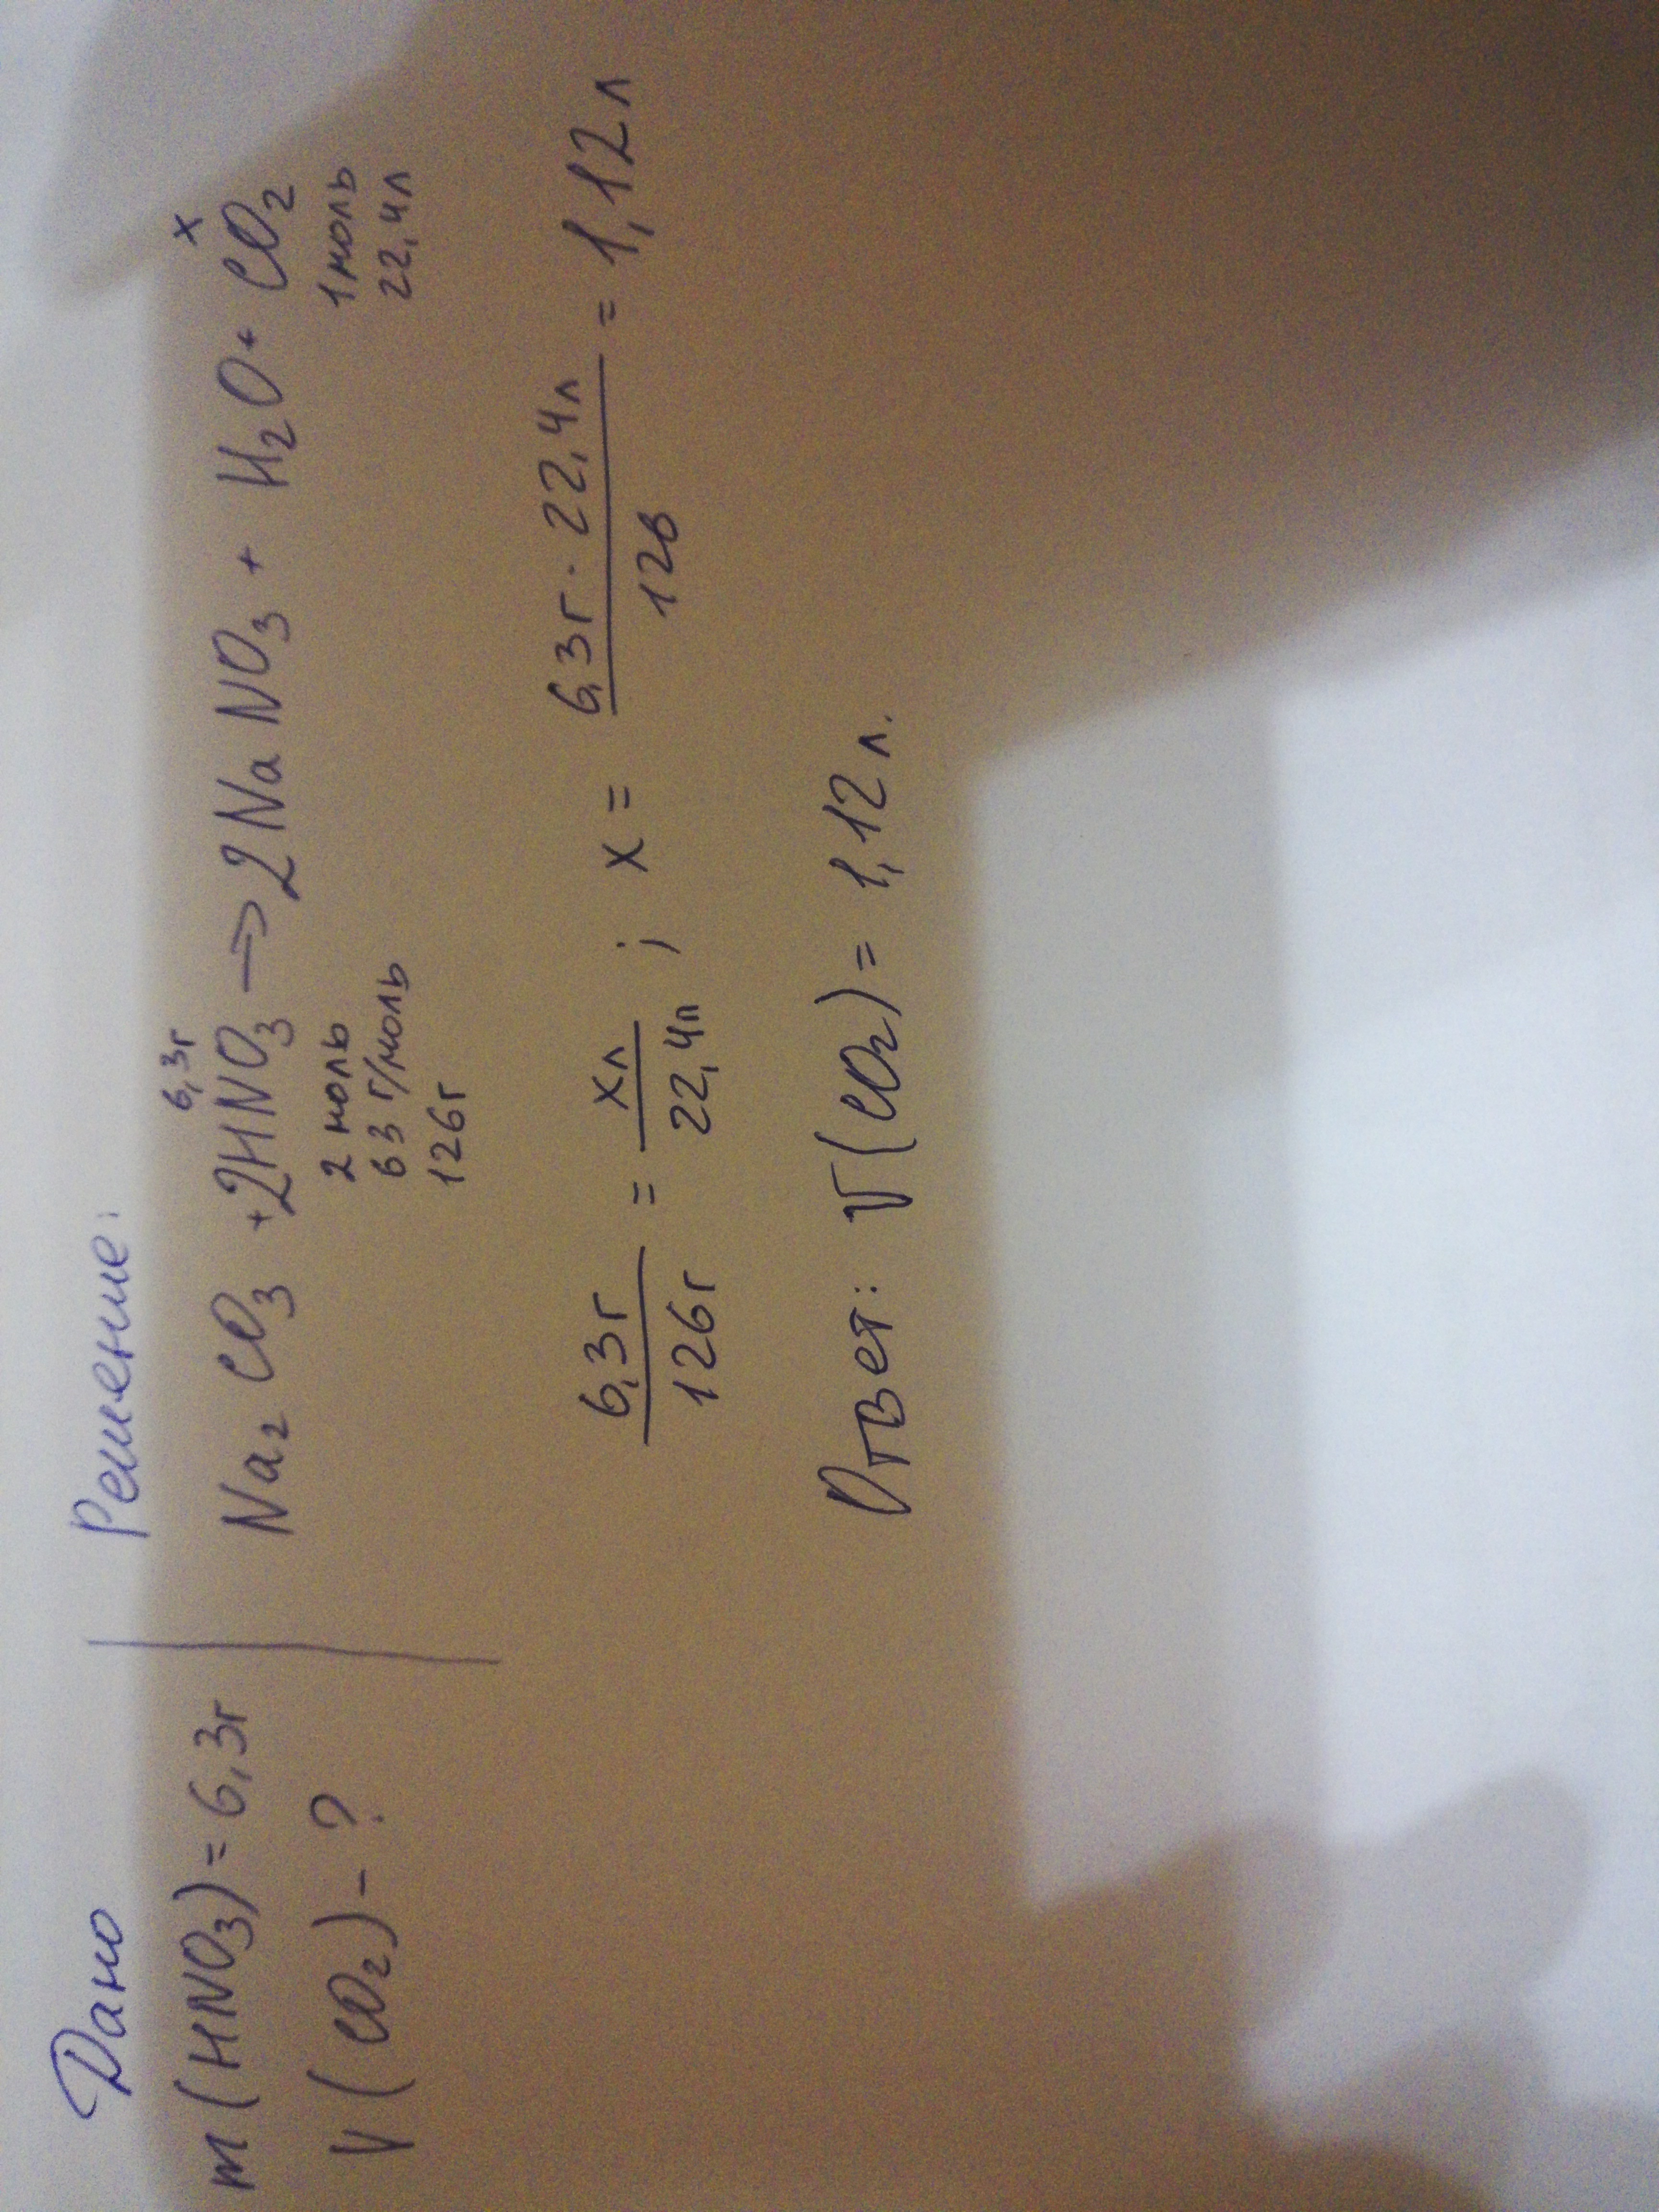 Дано
m(HNO₃)=6,3г
V(CO₂)-?
Решение:
6,3г x
Na₂CO₃ +2HNO₃ → 2NaNO₃ + H₂O + CO₂
2 моль 1 моль
63 г/моль 22,4л
126г
6,3г/126г = xл/22,4л ; x = 6,3г · 22,4л/126 = 1,12л
Ответ: V(CO₂) = 1,12 л.